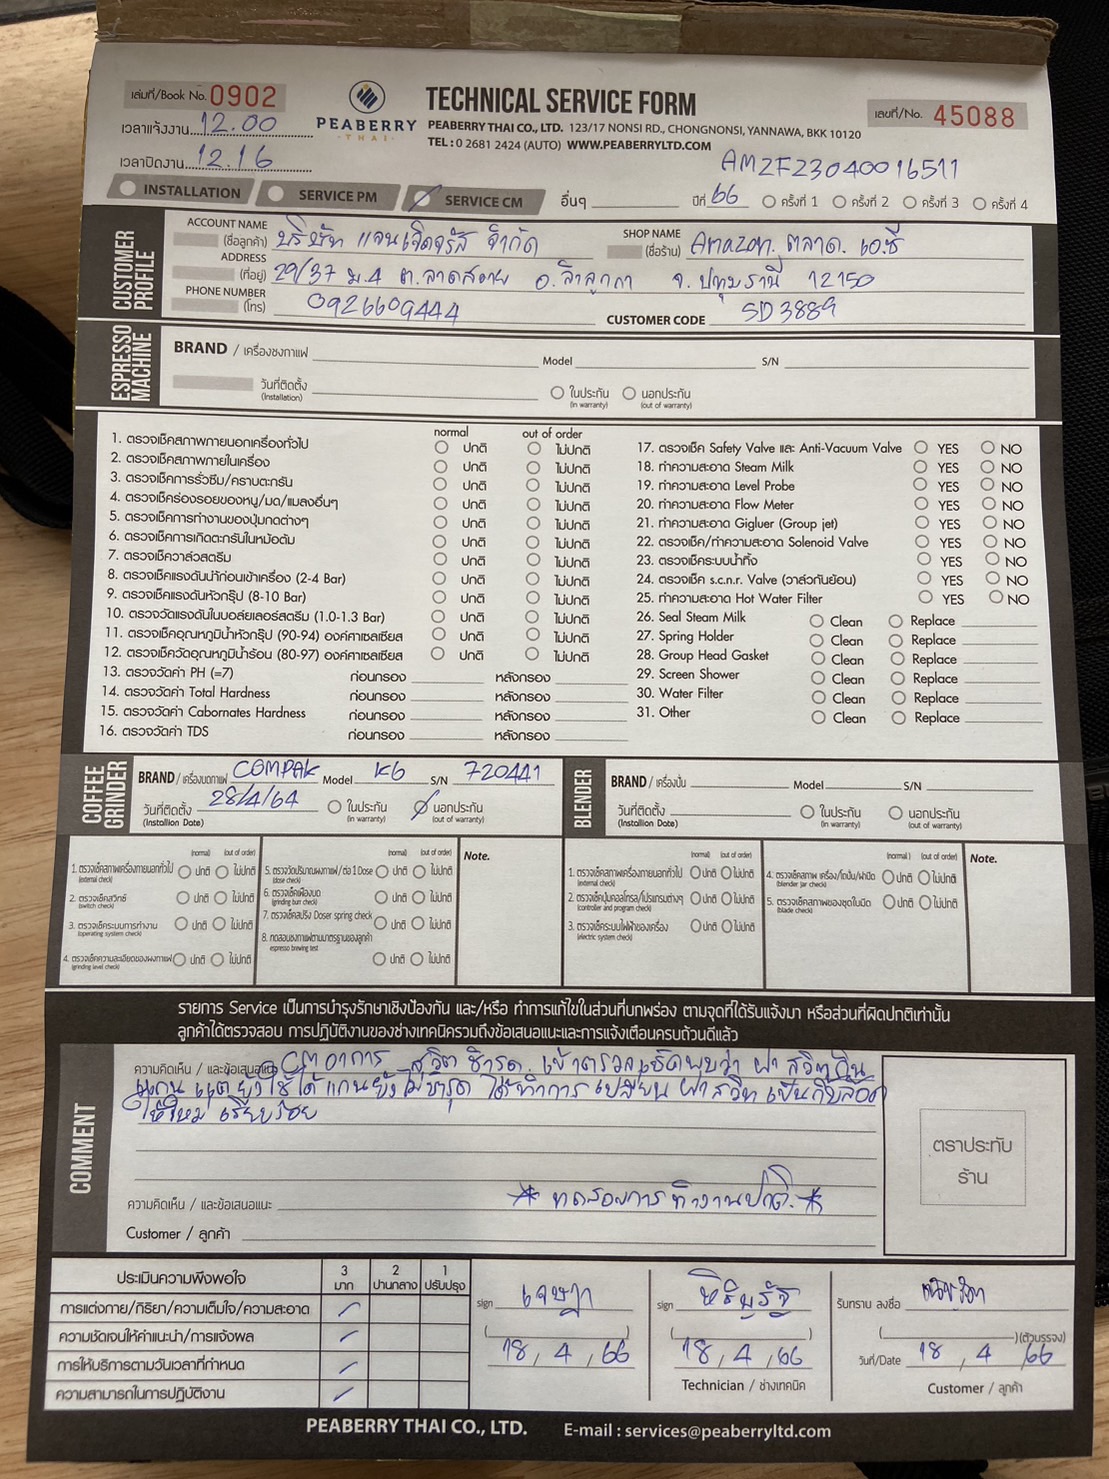 เล่มที่/Book No. 0902
เวลาแจ้งงาน 12.00
เวลาปิดงาน 12.16
PEABERRY
THAI
TECHNICAL SERVICE FORM
PEABERRY THAI CO., LTD. 123/17 NONSI RD., CHONGNONSI, YANNAWA, BKK 10120
TEL : 0 2681 2424 (AUTO) WWW.PEABERRYLTD.COM
เลขที่/No. 45088
AMZF23040016511
INSTALLATION SERVICE PM SERVICE CM อื่นๆ ปีที่ 66 ครั้งที่ 1 ครั้งที่ 2 ครั้งที่ 3 ครั้งที่ 4
CUSTOMER PROFILE
ACCOUNT NAME (ชื่อลูกค้า) บริษัท แจนเจิดจรัส จำกัด SHOP NAME (ชื่อร้าน) Amazon. ตลาด. เอ.ซี
ADDRESS (ที่อยู่) 29/37 ม.4 ต.ลาดสวาย อ.ลำลูกกา จ.ปทุมธานี 12150
PHONE NUMBER (โทร) 0926609444 CUSTOMER CODE SD3889
ESPRESSO MACHINE
BRAND / เครื่องชงกาแฟ Model S/N
วันที่ติดตั้ง (Installation) ในประกัน (in warranty) นอกประกัน (out of warranty)
normal out of order
1. ตรวจเช็คสภาพภายนอกเครื่องทั่วไป ปกติ ไม่ปกติ
2. ตรวจเช็คสภาพภายในเครื่อง ปกติ ไม่ปกติ
3. ตรวจเช็คการรั่วซึม/คราบตะกรัน ปกติ ไม่ปกติ
4. ตรวจเช็คร่องรอยของหนู/มด/แมลงอื่นๆ ปกติ ไม่ปกติ
5. ตรวจเช็คการทำงานของปุ่มกดต่างๆ ปกติ ไม่ปกติ
6. ตรวจเช็คการเกิดตะกรันในหม้อต้ม ปกติ ไม่ปกติ
7. ตรวจเช็ควาล์วสตรีม ปกติ ไม่ปกติ
8. ตรวจเช็คแรงดันน้ำก่อนเข้าเครื่อง (2-4 Bar) ปกติ ไม่ปกติ
9. ตรวจเช็คแรงดันหัวกรุ๊ป (8-10 Bar) ปกติ ไม่ปกติ
10. ตรวจวัดแรงดันในบอล์ยเลอร์สตรีม (1.0-1.3 Bar) ปกติ ไม่ปกติ
11. ตรวจเช็คอุณหภูมิน้ำหัวกรุ๊ป (90-94) องศาเซลเซียส ปกติ ไม่ปกติ
12. ตรวจเช็ควัดอุณหภูมิน้ำร้อน (80-97) องศาเซลเซียส ปกติ ไม่ปกติ
13. ตรวจวัดค่า PH (=7) ก่อนกรอง หลังกรอง
14. ตรวจวัดค่า Total Hardness ก่อนกรอง หลังกรอง
15. ตรวจวัดค่า Cabornates Hardness ก่อนกรอง หลังกรอง
16. ตรวจวัดค่า TDS ก่อนกรอง หลังกรอง
17. ตรวจเช็ค Safety Valve และ Anti-Vacuum Valve YES NO
18. ทำความสะอาด Steam Milk YES NO
19. ทำความสะอาด Level Probe YES NO
20. ทำความสะอาด Flow Meter YES NO
21. ทำความสะอาด Gigluer (Group jet) YES NO
22. ตรวจเช็ค/ทำความสะอาด Solenoid Valve YES NO
23. ตรวจเช็คระบบน้ำทิ้ง YES NO
24. ตรวจเช็ค s.c.n.r. Valve (วาล์วกันย้อน) YES NO
25. ทำความสะอาด Hot Water Filter YES NO
26. Seal Steam Milk Clean Replace
27. Spring Holder Clean Replace
28. Group Head Gasket Clean Replace
29. Screen Shower Clean Replace
30. Water Filter Clean Replace
31. Other Clean Replace
COFFEE GRINDER
BRAND / เครื่องบดกาแฟ COMPAK Model K6 S/N 720441
วันที่ติดตั้ง (Installion Date) 28/4/64 ในประกัน (in warranty) นอกประกัน (out of warranty)
BLENDER
BRAND / เครื่องปั่น Model S/N
วันที่ติดตั้ง (Installion Date) ในประกัน (in warranty) นอกประกัน (out of warranty)
(normal) (out of order)
1. ตรวจเช็คสภาพเครื่องภายนอกทั่วไป (external check) ปกติ ไม่ปกติ
2. ตรวจเช็คสวิทซ์ (switch check) ปกติ ไม่ปกติ
3. ตรวจเช็คระบบการทำงาน (operating system check) ปกติ ไม่ปกติ
4. ตรวจเช็คความละเอียดของผงกาแฟ (grinding level check) ปกติ ไม่ปกติ
(normal) (out of order)
5. ตรวจวัดปริมาณผงกาแฟ/ต่อ 1 Dose (dose check) ปกติ ไม่ปกติ
6. ตรวจเช็คเฟืองบด (grinding burr check) ปกติ ไม่ปกติ
7. ตรวจเช็คสปริง Doser spring check ปกติ ไม่ปกติ
8. ทดสอบชงกาแฟตามมาตรฐานของลูกค้า espresso brewing test ปกติ ไม่ปกติ
Note.
(normal) (out of order)
1. ตรวจเช็คสภาพเครื่องภายนอกทั่วไป (external check) ปกติ ไม่ปกติ
2. ตรวจเช็คปุ่มคอลโทรล/โปรแกรมต่างๆ (controller and program check) ปกติ ไม่ปกติ
3. ตรวจเช็คระบบไฟฟ้าของเครื่อง (electric system check) ปกติ ไม่ปกติ
(normal) (out of order)
4. ตรวจเช็คสภาพ เครื่อง/โถปั่น/ฝาปิด (blender jar check) ปกติ ไม่ปกติ
5. ตรวจเช็คสภาพของชุดใบมีด (blade check) ปกติ ไม่ปกติ
Note.
รายการ Service เป็นการบำรุงรักษาเชิงป้องกัน และ/หรือ ทำการแก้ไขในส่วนที่บกพร่อง ตามจุดที่ได้รับแจ้งมา หรือส่วนที่ผิดปกติเท่านั้น
ลูกค้าได้ตรวจสอบ การปฏิบัติงานของช่างเทคนิครวมถึงข้อเสนอแนะและการแจ้งเตือนครบถ้วนดีแล้ว
COMMENT
ความคิดเห็น / และข้อเสนอแนะ CM อาการ สวิต ชำรุด. เข้าตรวจเช็คพบว่า ฝา สวิทกิน
แกน แต่ยังใช้ได้ แกนยังไม่ชำรุด ได้ทำการ เปลี่ยน ฝาสวิท เป็นกิ๊บล็อค
ให้ใหม่ เรียบร้อย
ความคิดเห็น / และข้อเสนอแนะ * ทดสอบการทำงานปกติ. *
Customer / ลูกค้า
ตราประทับ
ร้าน
ประเมินความพึงพอใจ 3 มาก 2 ปานกลาง 1 ปรับปรุง
การแต่งกาย/กิริยา/ความเต็มใจ/ความสะอาด
ความชัดเจนให้คำแนะนำ/การแจ้งผล
การให้บริการตามวันเวลาที่กำหนด
ความสามารถในการปฏิบัติงาน
sign เจษฎา
18 / 4 / 66
sign
18 / 4 / 66
Technician / ช่างเทคนิค
รับทราบ ลงชื่อ
(ตัวบรรจง)
วันที่/Date 18 / 4 / 66
Customer / ลูกค้า
PEABERRY THAI CO., LTD. E-mail : services@peaberryltd.com